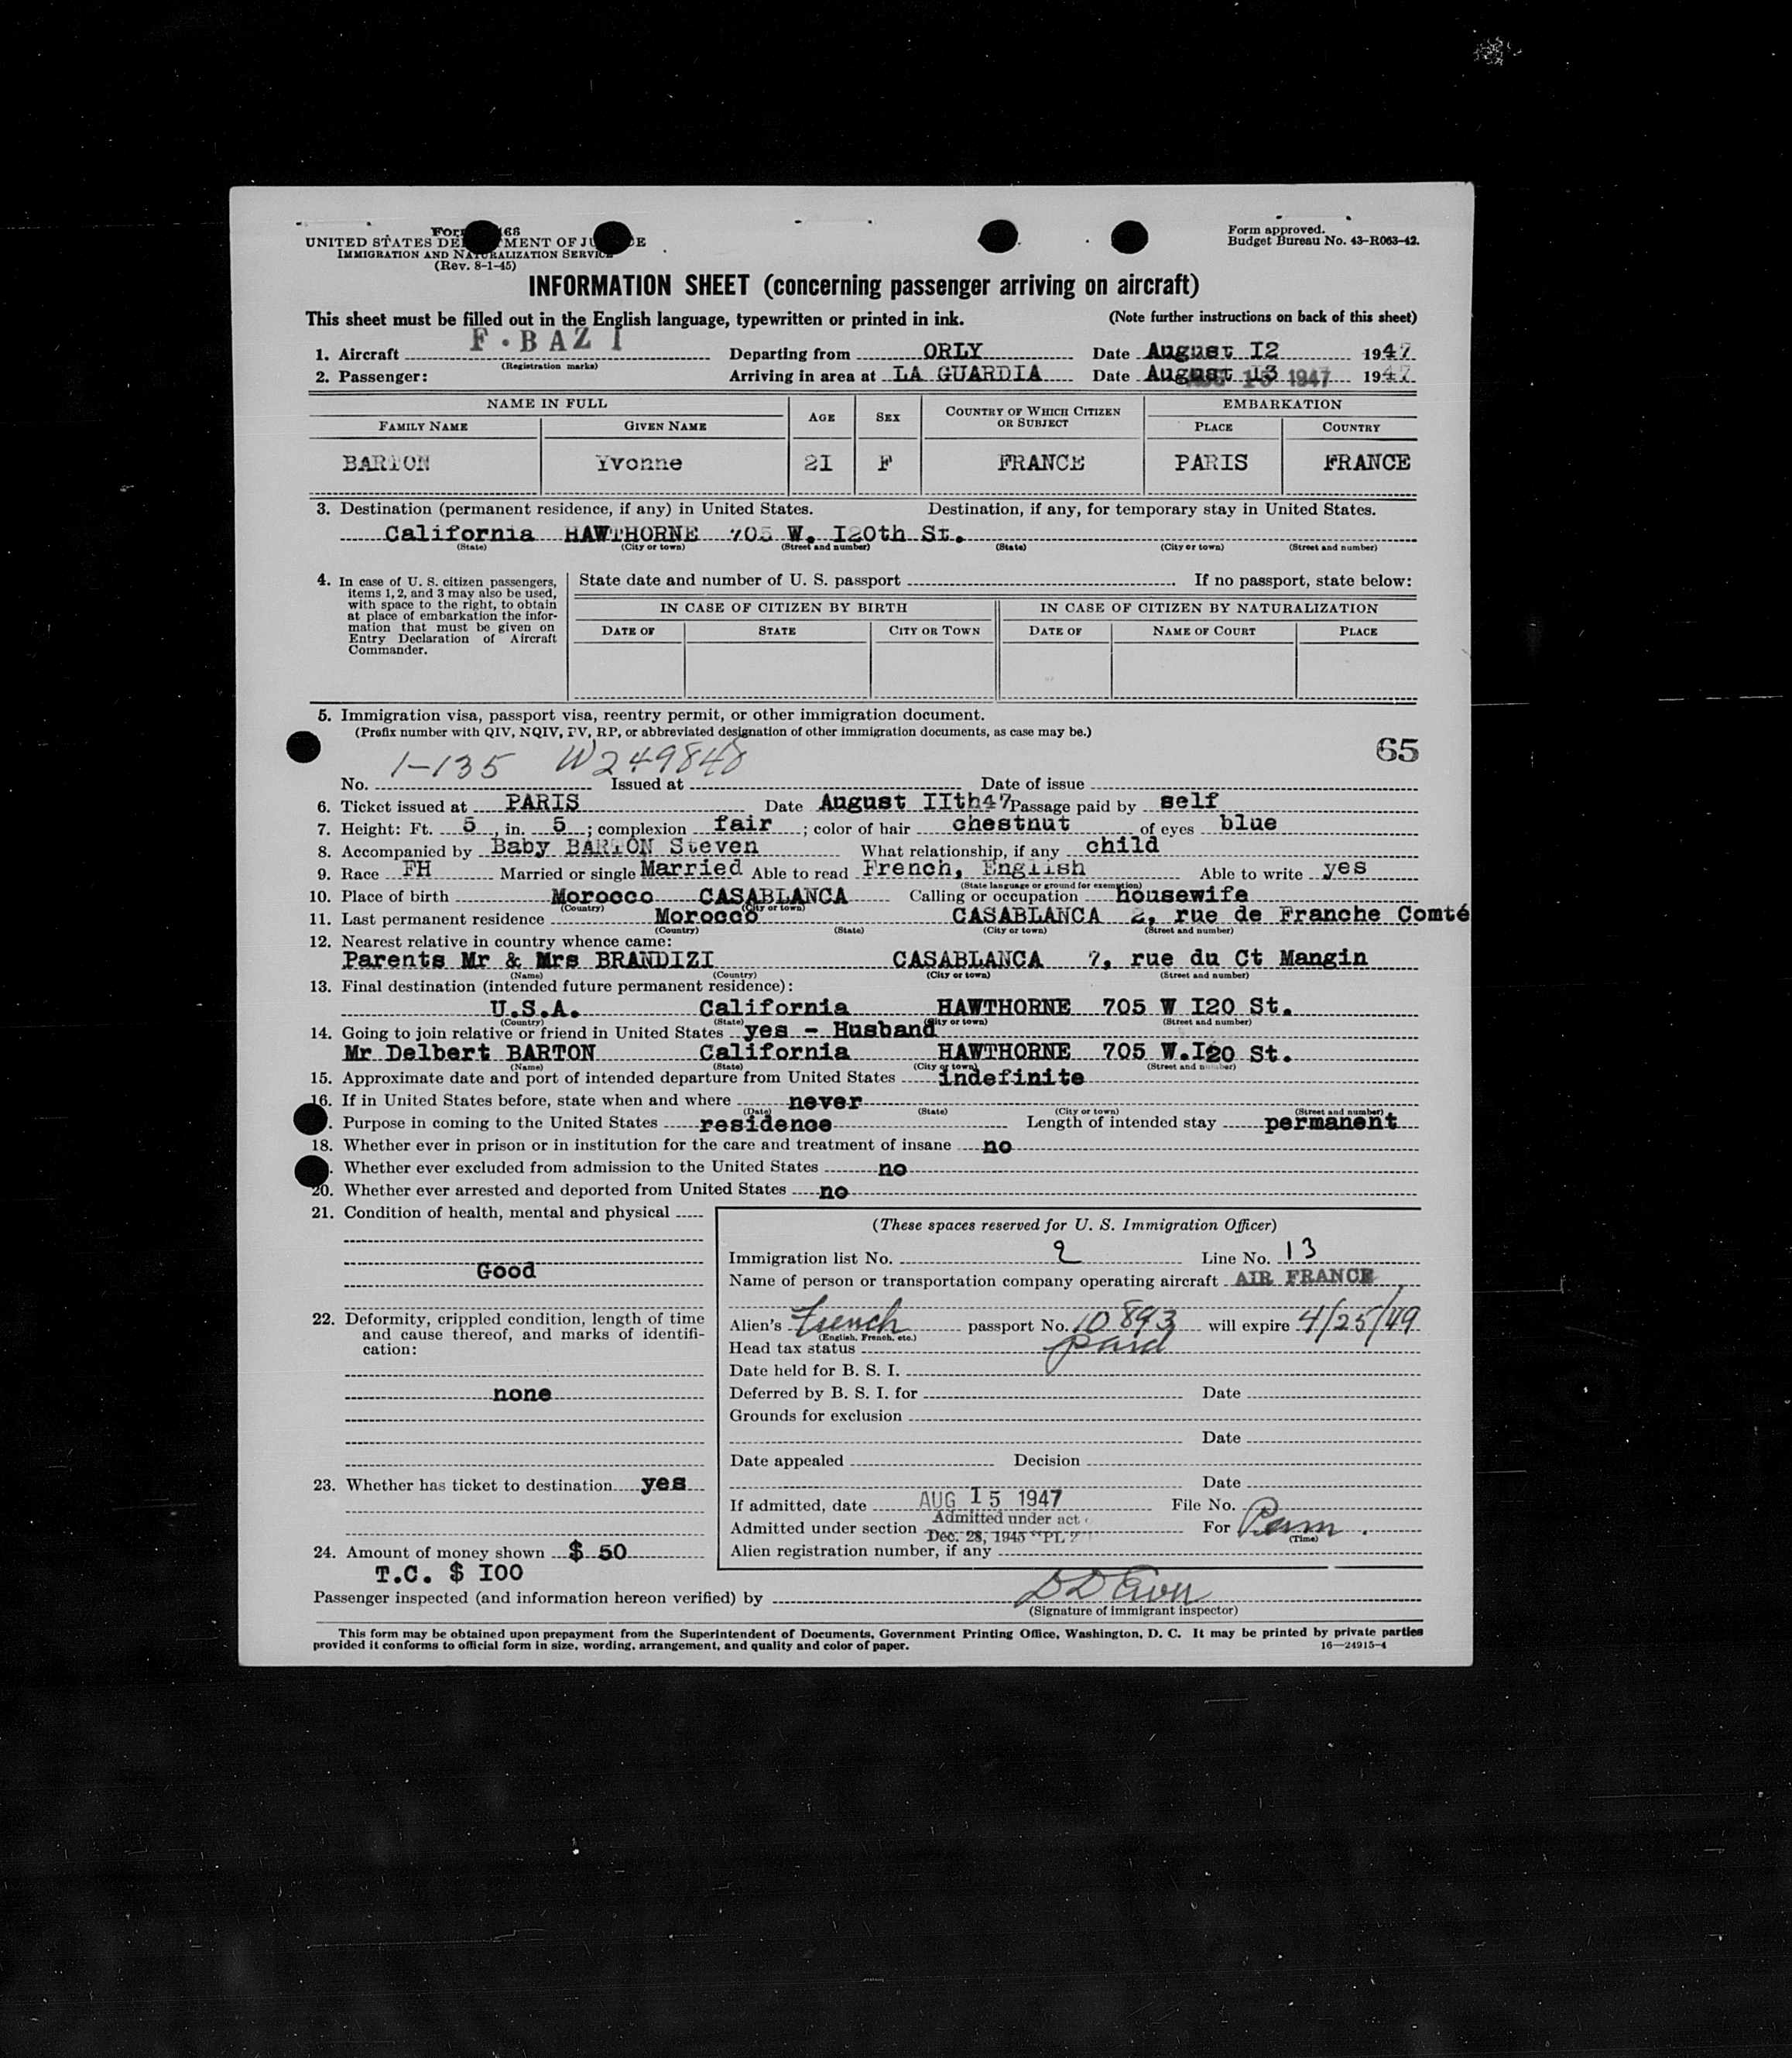 UNITED STATES DEPARTMENT OF JUSTICE
IMMIGRATION AND NATURALIZATION SERVICE
(Rev. 8-1-45)
Form approved.
Budget Bureau No. 43-R063-42.
INFORMATION SHEET (concerning passenger arriving on aircraft)
This sheet must be filled out in the English language, typewritten or printed in ink. (Note further instructions on back of this sheet)
1. Aircraft F·BAZ I Departing from ORLY Date August I2 1947
(Registration marks)
2. Passenger: Arriving in area at LA GUARDIA Date August 13 1947
NAME IN FULL AGE SEX COUNTRY OF WHICH CITIZEN OR SUBJECT EMBARKATION
FAMILY NAME GIVEN NAME PLACE COUNTRY
BARTON Yvonne 2I F FRANCE PARIS FRANCE
3. Destination (permanent residence, if any) in United States. Destination, if any, for temporary stay in United States.
California HAWTHORNE 705 W. I20th St.
(State) (City or town) (Street and number) (State) (City or town) (Street and number)
4. In case of U. S. citizen passengers, items 1, 2, and 3 may also be used, with space to the right, to obtain at place of embarkation the information that must be given on Entry Declaration of Aircraft Commander.
State date and number of U. S. passport . If no passport, state below:
IN CASE OF CITIZEN BY BIRTH IN CASE OF CITIZEN BY NATURALIZATION
DATE OF STATE CITY OR TOWN DATE OF NAME OF COURT PLACE
5. Immigration visa, passport visa, reentry permit, or other immigration document.
(Prefix number with QIV, NQIV, PV, RP, or abbreviated designation of other immigration documents, as case may be.)
65
1-135 W249848
No. Issued at Date of issue
6. Ticket issued at PARIS Date August IIth47 Passage paid by self
7. Height: Ft. 5, in. 5; complexion fair; color of hair chestnut of eyes blue
8. Accompanied by Baby BARTON Steven What relationship, if any child
9. Race FH Married or single Married Able to read French, English Able to write yes
(State language or ground for exemption)
10. Place of birth Morocco CASABLANCA Calling or occupation housewife
(Country) (City or town)
11. Last permanent residence Morocco CASABLANCA 2, rue de Franche Comté
(Country) (State) (City or town) (Street and number)
12. Nearest relative in country whence came:
Parents Mr & Mrs BRANDIZI CASABLANCA 7, rue du Ct Mangin
(Name) (Country) (City or town) (Street and number)
13. Final destination (intended future permanent residence):
U.S.A. California HAWTHORNE 705 W I20 St.
(Country) (State) (City or town) (Street and number)
14. Going to join relative or friend in United States yes - Husband
Mr Delbert BARTON California HAWTHORNE 705 W.I20 St.
(Name) (State) (City or town) (Street and number)
15. Approximate date and port of intended departure from United States indefinite
16. If in United States before, state when and where never
(Date) (State) (City or town) (Street and number)
. Purpose in coming to the United States residence Length of intended stay permanent
18. Whether ever in prison or in institution for the care and treatment of insane no
. Whether ever excluded from admission to the United States no
20. Whether ever arrested and deported from United States no
21. Condition of health, mental and physical
Good
22. Deformity, crippled condition, length of time and cause thereof, and marks of identification:
none
23. Whether has ticket to destination yes
24. Amount of money shown $ 50
T.C. $ I00
(These spaces reserved for U. S. Immigration Officer)
Immigration list No. 2 Line No. 13
Name of person or transportation company operating aircraft AIR FRANCE
Alien's French passport No. 10893 will expire 4/25/49
(English, French, etc.)
Head tax status paid
Date held for B. S. I.
Deferred by B. S. I. for Date
Grounds for exclusion
Date
Date appealed Decision
Date
If admitted, date AUG 15 1947 File No.
Admitted under section Admitted under act For Perm.
Dec. 28, 1945 "PL (Time)
Alien registration number, if any
Passenger inspected (and information hereon verified) by
(Signature of immigrant inspector)
This form may be obtained upon prepayment from the Superintendent of Documents, Government Printing Office, Washington, D. C. It may be printed by private parties
provided it conforms to official form in size, wording, arrangement, and quality and color of paper. 16—24915-4